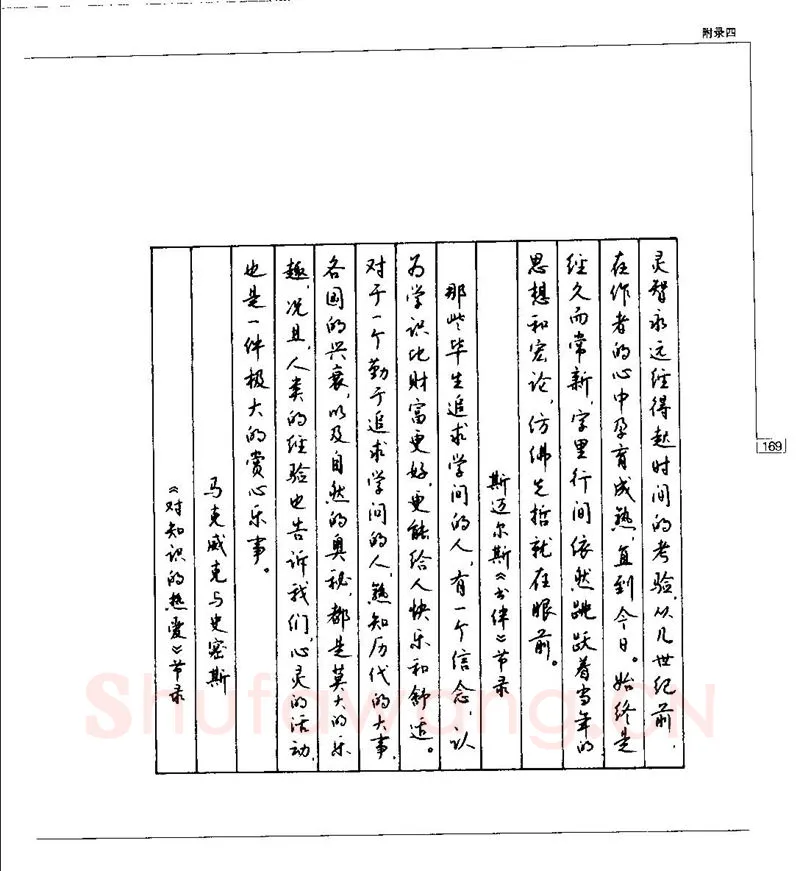 附录四
灵智永远经得起时间的考验，从几世纪前，
在作者的心中孕育成熟，直到今日。始终是
经久而常新，字里行间依然跳跃着当年的
思想和宏论，仿佛先哲就在眼前。
斯迈尔斯《书伴》节录
那些毕生追求学问的人，有一个信念，认
为学识比财富更好，更能给人快乐和舒适。
对于一个勤于追求学问的人，熟知历代的大事，
各国的兴衰，以及自然的奥秘，都是莫大的乐
趣，况且，人类的经验也告诉我们，心灵的活动，
也是一件极大的赏心乐事。
马克威克与史密斯
《对知识的热爱》节录
169
Shufawang.CN